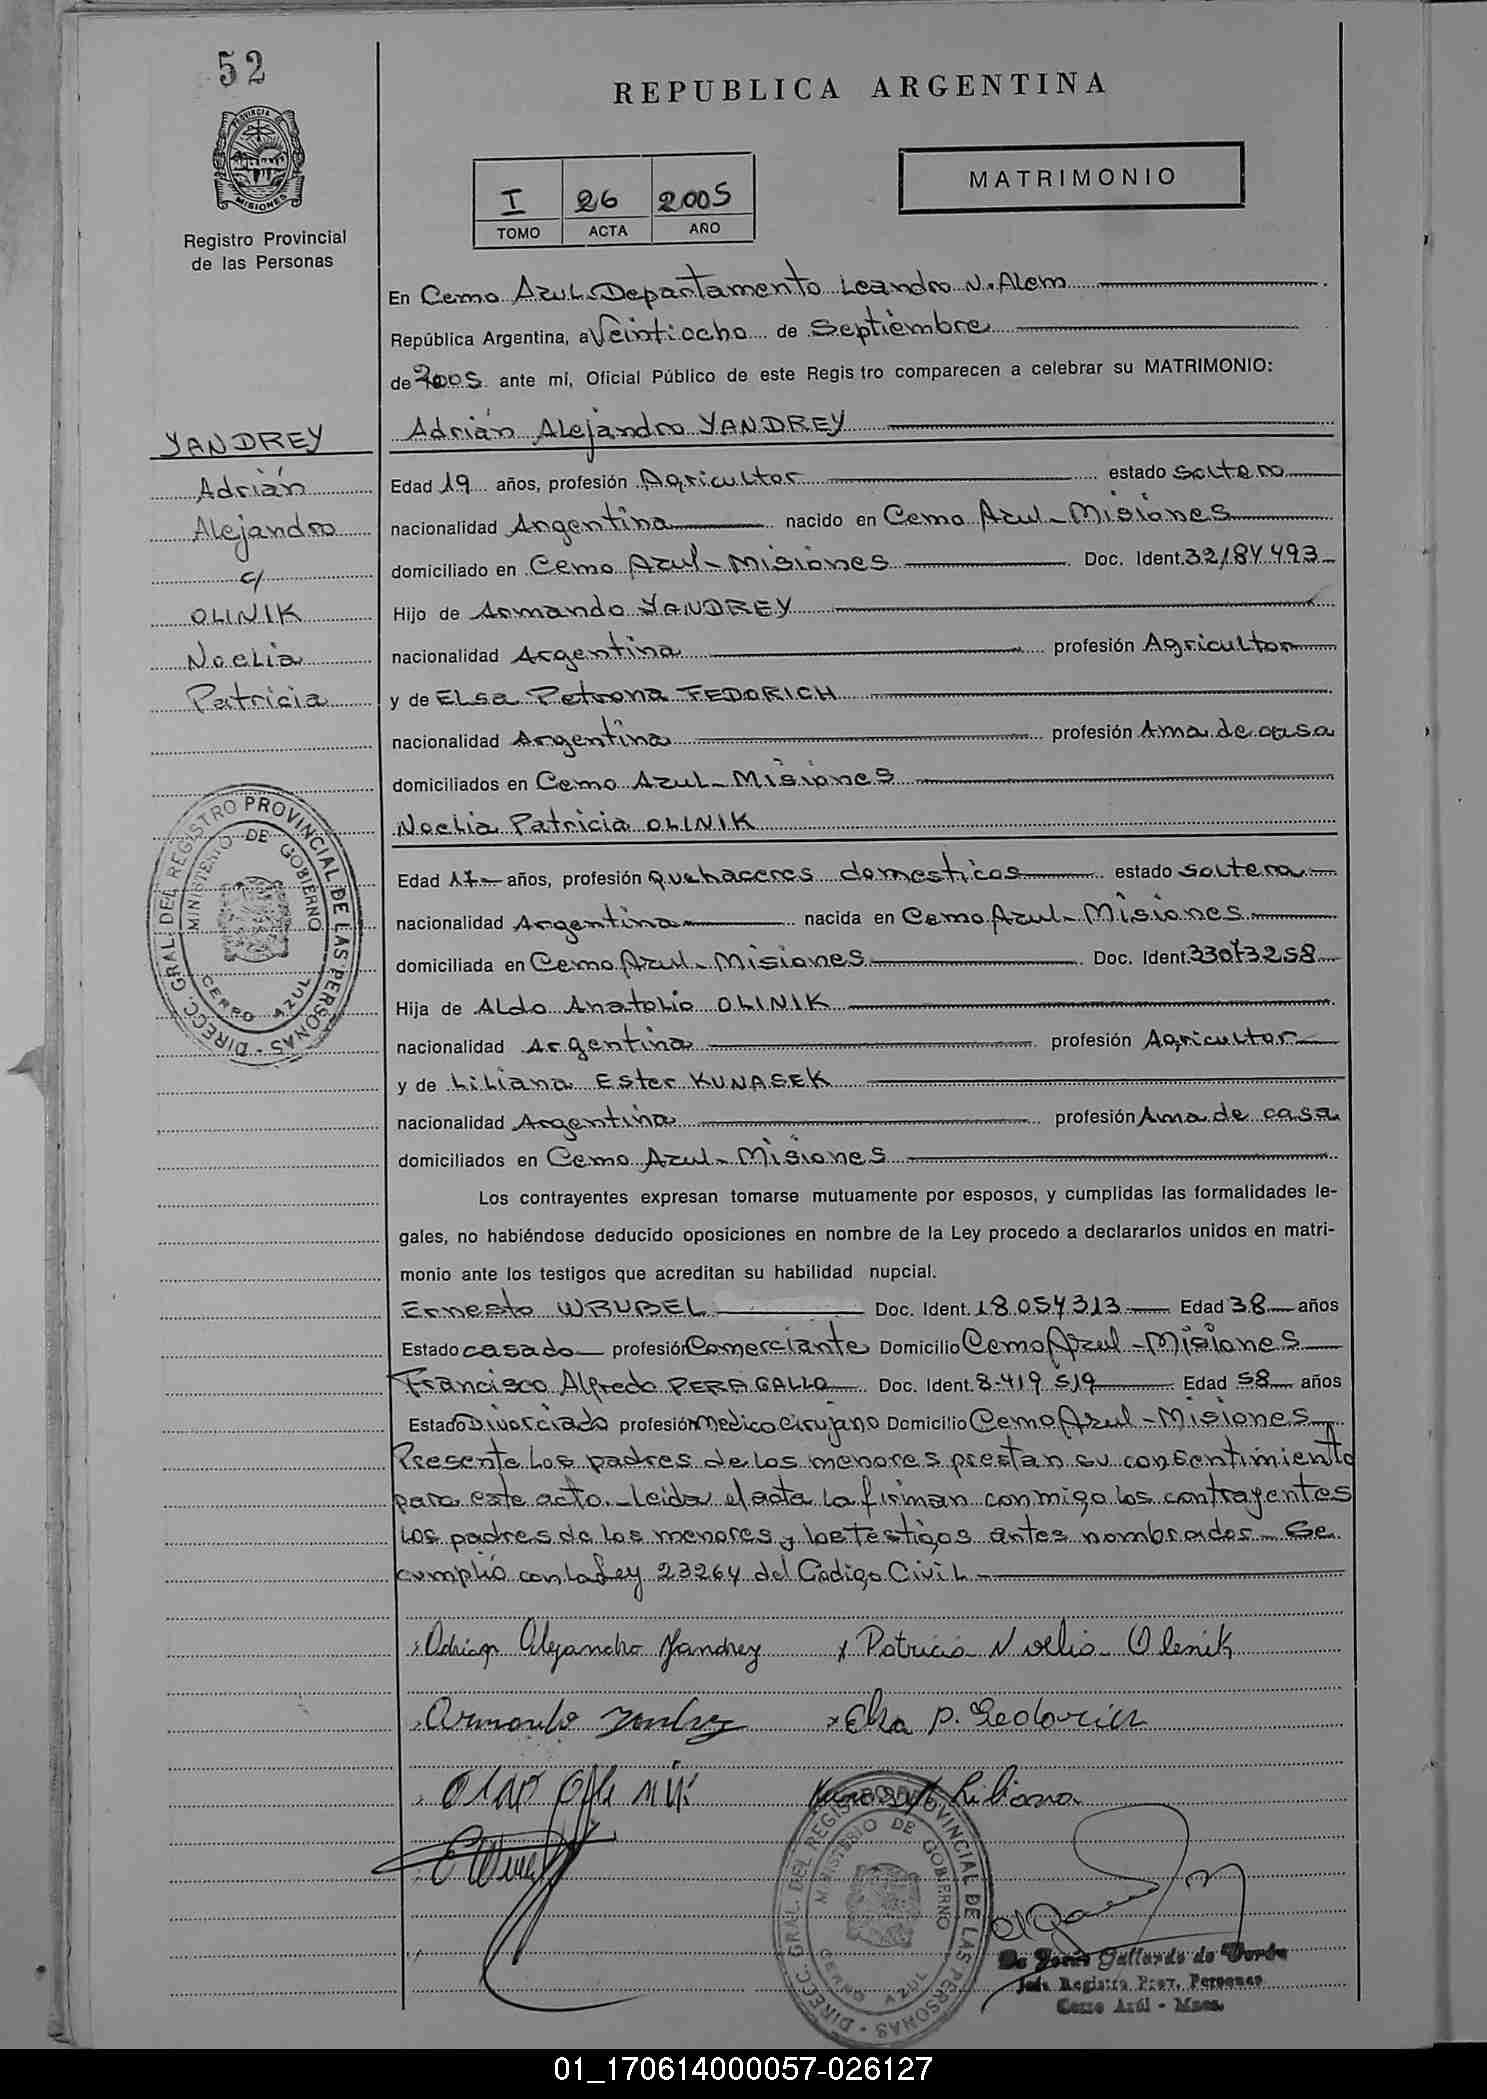 52
REPUBLICA ARGENTINA
PROVINCIA DE
MISIONES
Registro Provincial
de las Personas
MATRIMONIO
I 26 2005
TOMO ACTA AÑO
En Cerro Azul Departamento Leandro N. Alem
República Argentina, a Veintiocho de Septiembre
de 2005 ante mí, Oficial Público de este Registro comparecen a celebrar su MATRIMONIO:
YANDREY
Adrián
Alejandro
c/
OLINIK
Noelia
Patricia
Adrián Alejandro YANDREY
Edad 19 años, profesión Agricultor estado soltero
nacionalidad Argentina nacido en Cerro Azul - Misiones
domiciliado en Cerro Azul - Misiones Doc. Ident.
Hijo de Armando YANDREY
nacionalidad Argentina profesión Agricultor
y de Elsa Petrona FEDORICH
nacionalidad Argentina profesión Ama de casa
domiciliados en Cerro Azul - Misiones
Noelia Patricia OLINIK
DIRECC. GRAL. DEL REGISTRO PROVINCIAL DE LAS PERSONAS -
MINISTERIO DE GOBIERNO
CERRO AZUL
Edad 17 - años, profesión quehaceres domesticos estado soltera
nacionalidad Argentina nacida en Cerro Azul - Misiones
domiciliada en Cerro Azul - Misiones Doc. Ident. 33073258
Hija de Aldo Anatolio OLINIK
nacionalidad Argentina profesión Agricultor
y de Liliana Ester KUNASEK
nacionalidad Argentina profesión Ama de casa
domiciliados en Cerro Azul - Misiones
Los contrayentes expresan tomarse mutuamente por esposos, y cumplidas las formalidades le-
gales, no habiéndose deducido oposiciones en nombre de la Ley procedo a declararlos unidos en matri-
monio ante los testigos que acreditan su habilidad nupcial.
Ernesto WRUBEL Doc. Ident. 18.054.313 Edad 38 años
Estado casado profesión Comerciante Domicilio Cerro Azul - Misiones
Francisco Alfredo PERAGALLO Doc. Ident. 8.419.519 Edad 58 años
Estado Divorciado profesión Medico Cirujano Domicilio Cerro Azul - Misiones
Presente los padres de los menores prestan su consentimiento
para este acto. - Leida el acta la firman conmigo los contrayentes
los padres de los menores y los testigos antes nombrados - Se
cumplió con la Ley 23264 del Codigo Civil -
x Adrian Alejandro Yandrey x Patricia Noelia Olenik
Armando Yandrey x Elsa P. Fedorich
Aldo Olenik Kunasek Liliana
DIRECC. GRAL. DEL REGISTRO PROVINCIAL DE LAS PERSONAS -
MINISTERIO DE GOBIERNO
CERRO AZUL
Gallardo de
Jefe Registro Prov. Personas
Cerro Azul - Mnes.
01_170614000057-026127